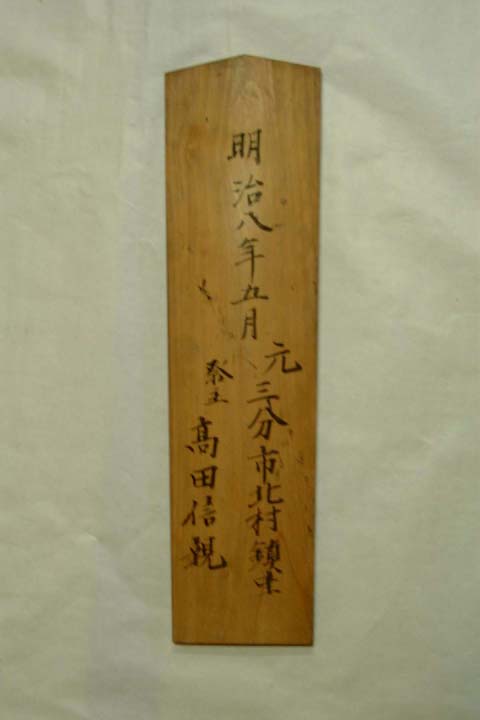 明治八年五月
元三分市北村鎮守
祭主
高田信親